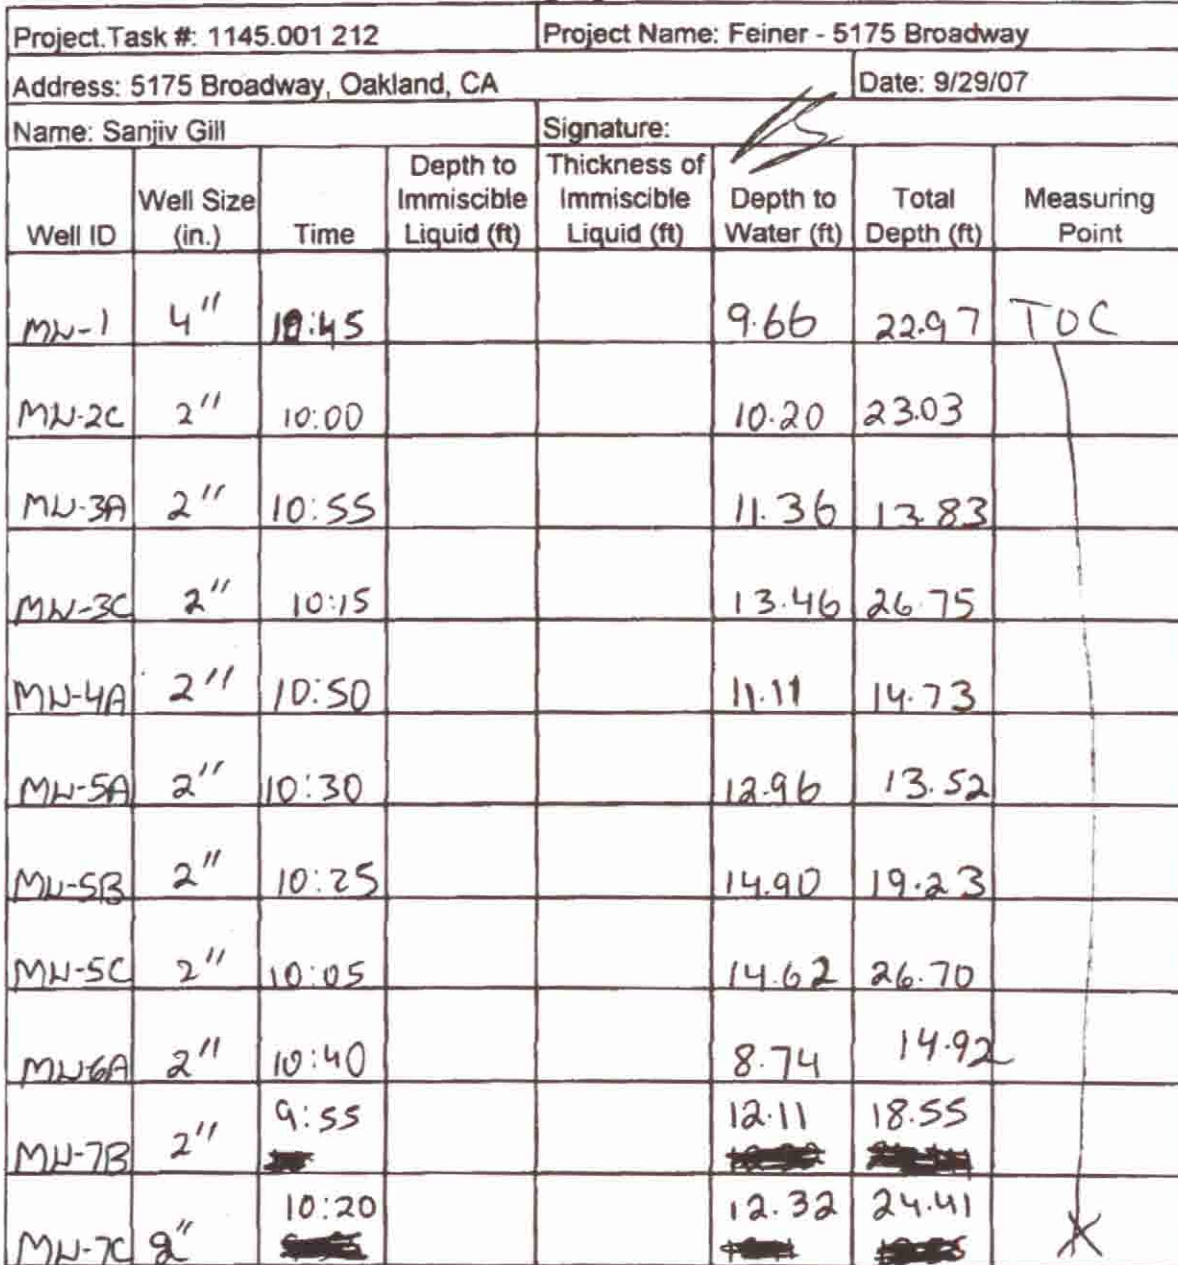 Project.Task #: 1145.001 212 Project Name: Feiner - 5175 Broadway
Address: 5175 Broadway, Oakland, CA Date: 9/29/07
Name: Sanjiv Gill Signature:
Well ID Well Size (in.) Time Depth to Immiscible Liquid (ft) Thickness of Immiscible Liquid (ft) Depth to Water (ft) Total Depth (ft) Measuring Point
MW-1 4" 10:45 9.66 22.97 TOC
MW-2C 2" 10:00 10.20 23.03
MW-3A 2" 10:55 11.36 13.83
MW-3C 2" 10:15 13.46 26.75
MW-4A 2" 10:50 11.11 14.73
MW-5A 2" 10:30 12.96 13.52
MW-5B 2" 10:25 14.90 19.23
MW-5C 2" 10:05 14.62 26.70
MW6A 2" 10:40 8.74 14.92
MW-7B 2" 9:55 12.11 18.55
MW-7C 2" 10:20 12.32 24.41